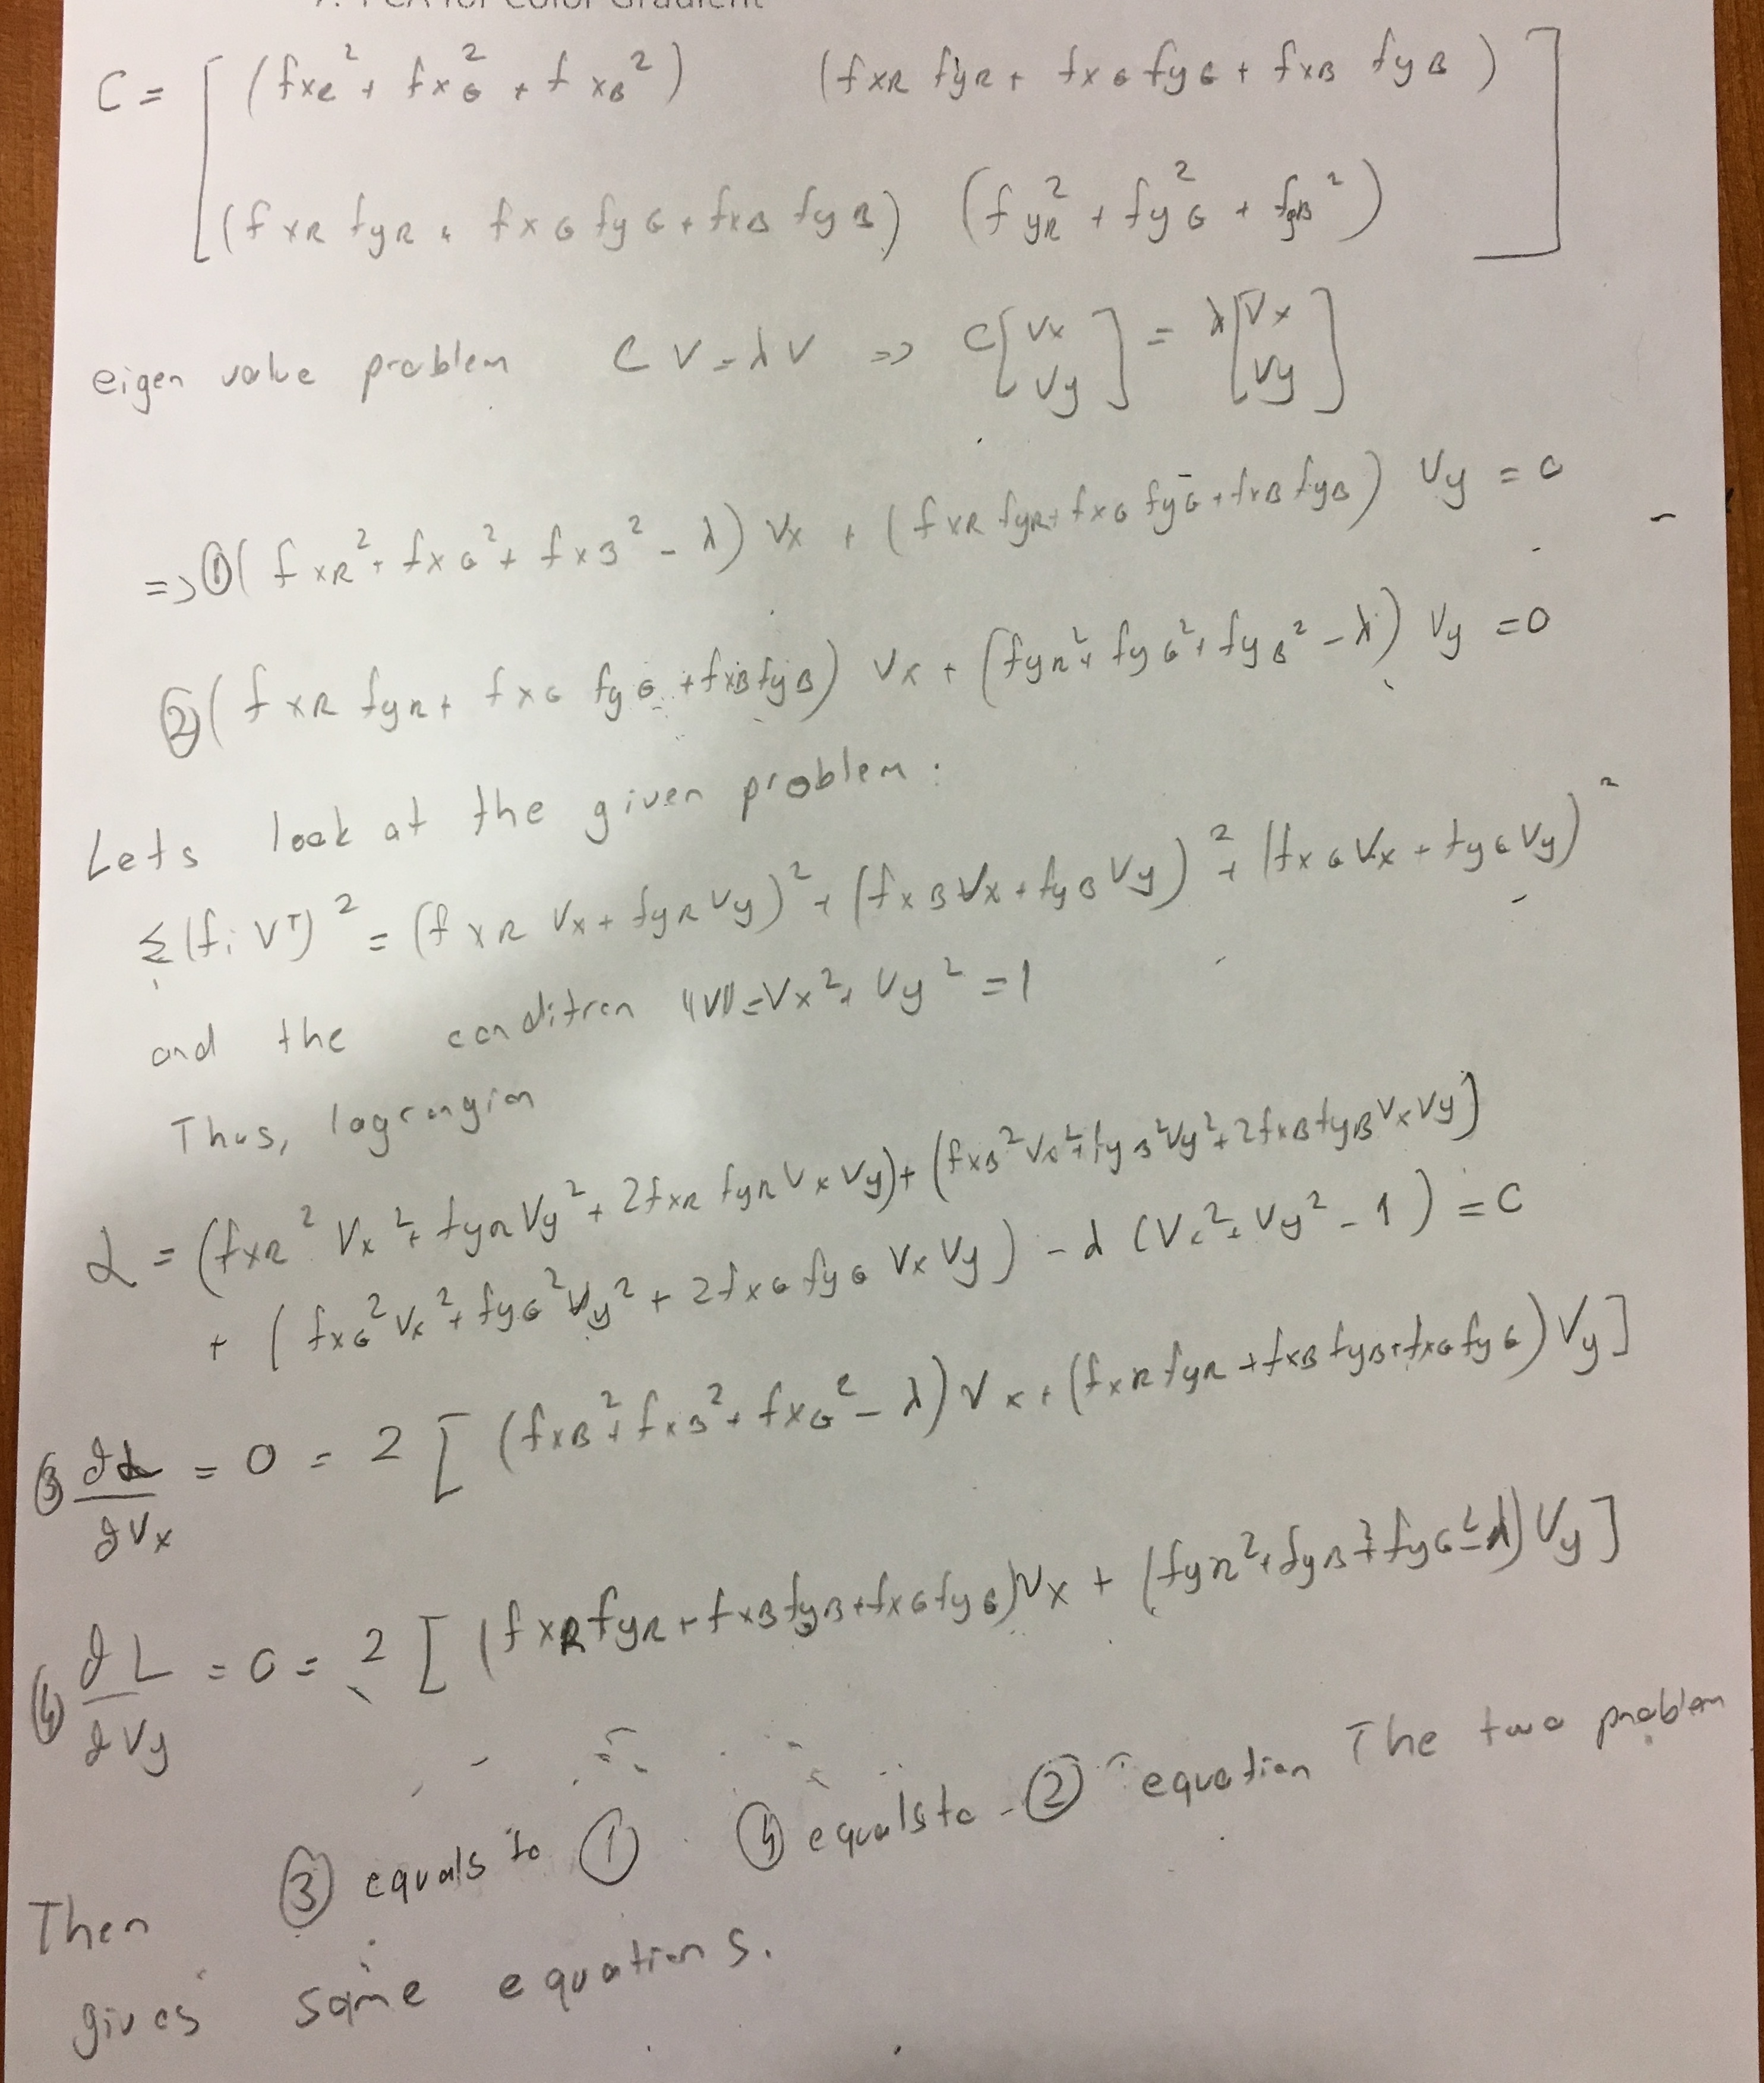 7. PCA for Color Gradient
C = [ (fxR² + fxG² + fxB²) (fxR fyR + fxG fyG + fxB fyB)
(fxR fyR + fxG fyG + fxB fyB) (fyR² + fyG² + fyB²) ]
eigen value problem C V = λ V => C [Vx Vy] = λ [Vx Vy]
=> ① (fxR² + fxG² + fxB² - λ) Vx + (fxR fyR + fxG fyG + fxB fyB) Vy = 0
② (fxR fyR + fxG fyG + fxB fyB) Vx + (fyR² + fyG² + fyB² - λ) Vy = 0
Lets look at the given problem:
Σ (fi Vᵀ)² = (fxR Vx + fyR Vy)² + (fxB Vx + fyB Vy)² + (fxG Vx + fyG Vy)²
i
and the condition ||V|| = Vx² + Vy² = 1
Thus, lagrangian
L = (fxR² Vx² + fyR Vy² + 2fxR fyR Vx Vy) + (fxB² Vx² + fyB² Vy² + 2fxB fyB Vx Vy)
+ (fxG² Vx² + fyG² Vy² + 2fxG fyG Vx Vy) - λ (Vx² + Vy² - 1) = 0
③ ∂L/∂Vx = 0 = 2 [ (fxB² + fxB² + fxG² - λ) Vx + (fxR fyR + fxB fyB + fxG fyG) Vy ]
④ ∂L/∂Vy = 0 = 2 [ (fxR fyR + fxB fyB + fxG fyG) Vx + (fyR² + fyB² + fyG² - λ) Vy ]
Then ③ equals to ① . ④ equals to ② equation The two problem
gives same equations.